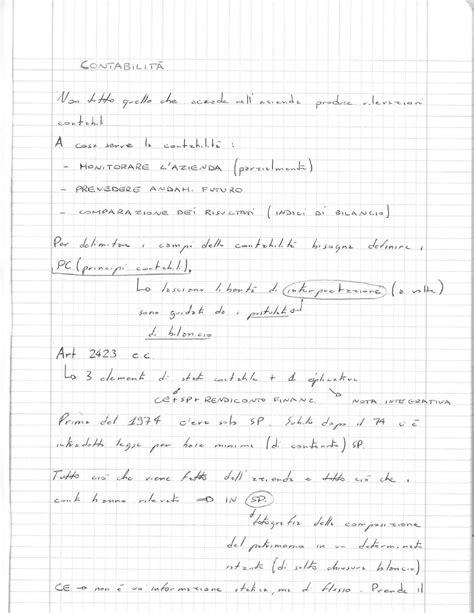 CONTABILITÀ
Non tutto quello che accade nell'azienda produce rilevazioni
contabili
A cosa serve la contabilità :
- MONITORARE L'AZIENDA (parzialmente)
- PREVEDERE ANDAM. FUTURO
- COMPARAZIONE DEI RISULTATI (INDICI DI BILANCIO)
Per delimitare i campi della contabilità bisogna definire i
PC (principi contabili).
↳ lasciano libertà di interpretazione (a volte)
sono guidati da i postulati
di bilancio
Art 2423 c.c.
↳ 3 elementi di stato contabile + 1 esplicativo
CE+SP+RENDICONTO FINANZ. ↳ NOTA INTEGRATIVA
Prima del 1974 c'era solo SP. Subito dopo il 74 si è
introdotto legge per base minima (di contenuto) SP.
Tutto ciò che viene fatto dall'azienda e tutto ciò che i
conti hanno rilevato → IN SP.
fotografia della composizione
del patrimonio in un determinato
istante (di solito chiusura bilancio)
CE → non è una informazione statica, ma di flusso. Prende il